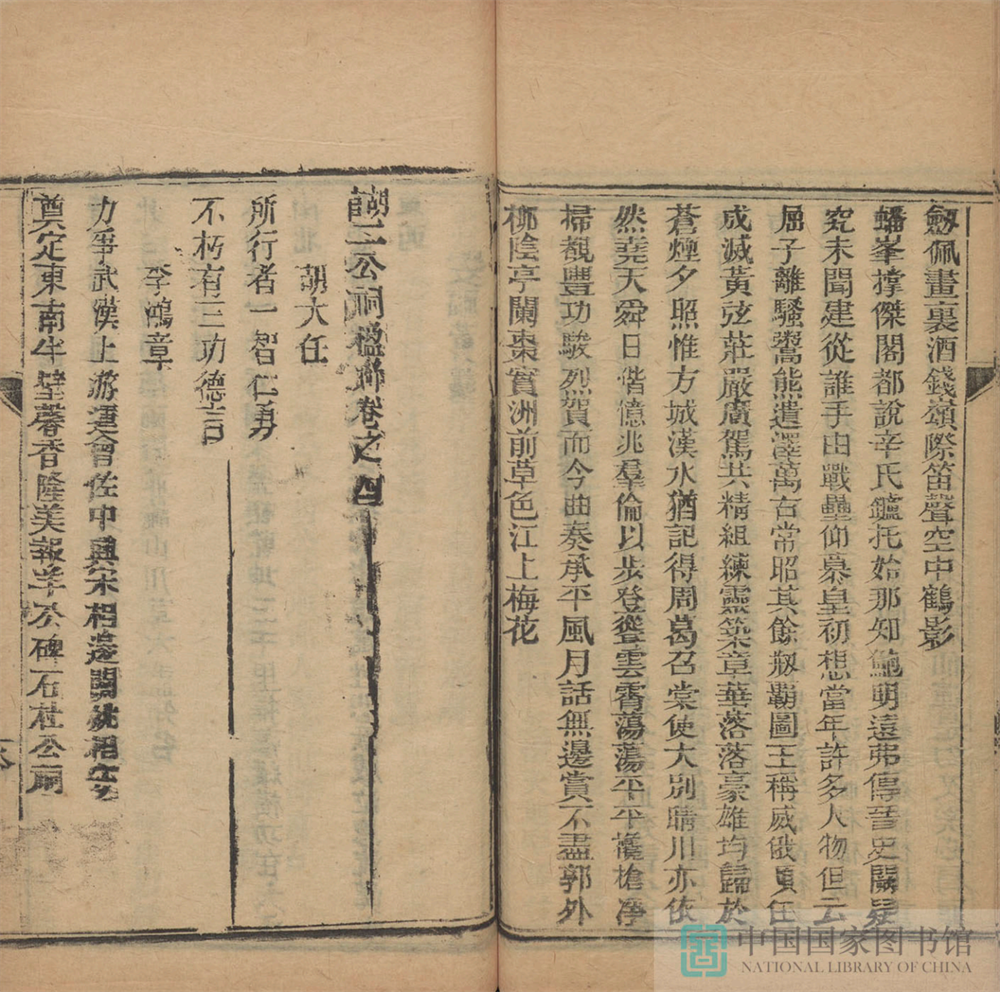 劒佩畫裏酒錢嶺際笛聲空中鶴影
蟠峯撐傑閣都說辛氏鑪托始那知鮑明遠弗傳晉史闕疑
究未聞建從誰手由戰壘仰慕皇初想當年許多人物但云
屈子離騷鬻熊遺澤萬古常昭其餘剏霸圖王稱威俄頃任
成滅黃弦莊嚴廣駕共精組練靈築章華落落豪雄均歸於
蒼煙夕照惟方城漢水猶記得周葛召棠使大別晴川亦依
然堯天舜日偕億兆羣倫以步登蹬雲霄蕩蕩平平欃槍淨
掃觀豐功駿烈賀而今曲奏承平風月話無邊賞不盡郭外
柳陰亭闌棗實洲前草色江上梅花
公祠楹聯卷之四
胡大任
所行者一智仁勇
不朽有三功德言
李鴻章
力爭武漢上游運會佐中興宋相
奠定東南半壁馨香隆美報羊公碑石杜公祠
中国国家图书馆
NATIONAL LIBRARY OF CHINA